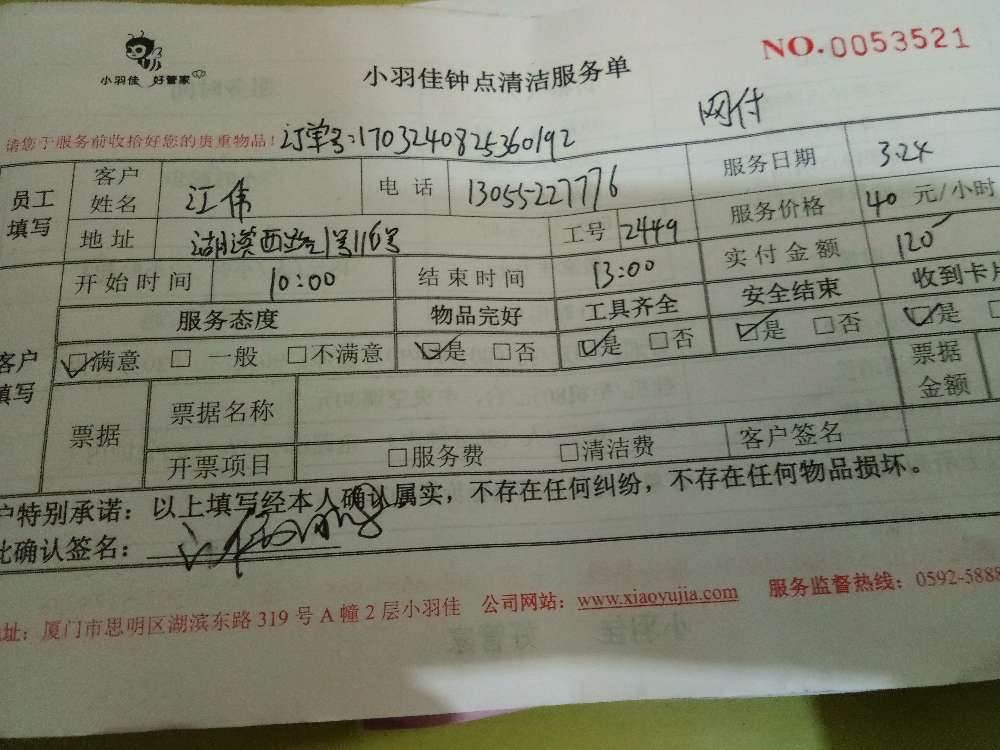 小羽佳 好管家
小羽佳钟点清洁服务单
NO.0053521
请您于服务前收拾好您的贵重物品!
订单号:1703240825360192
网付
员工填写
客户姓名 江伟 电话 13055227776 服务日期 3.24
地址 湖滨西路1号116号 工号 2449 服务价格 40 元/小时
开始时间 10:00 结束时间 13:00 实付金额 120
客户填写
服务态度 物品完好 工具齐全 安全结束 收到卡片
☑满意 □一般 □不满意 ☑是 □否 ☑是 □否 ☑是 □否 ☑是 □
票据 票据名称 票据金额
开票项目 □服务费 □清洁费 客户签名
户特别承诺:以上填写经本人确认属实,不存在任何纠纷,不存在任何物品损坏。
此确认签名:
地址:厦门市思明区湖滨东路 319 号 A 幢 2 层小羽佳 公司网站:www.xiaoyujia.com 服务监督热线:0592-5888